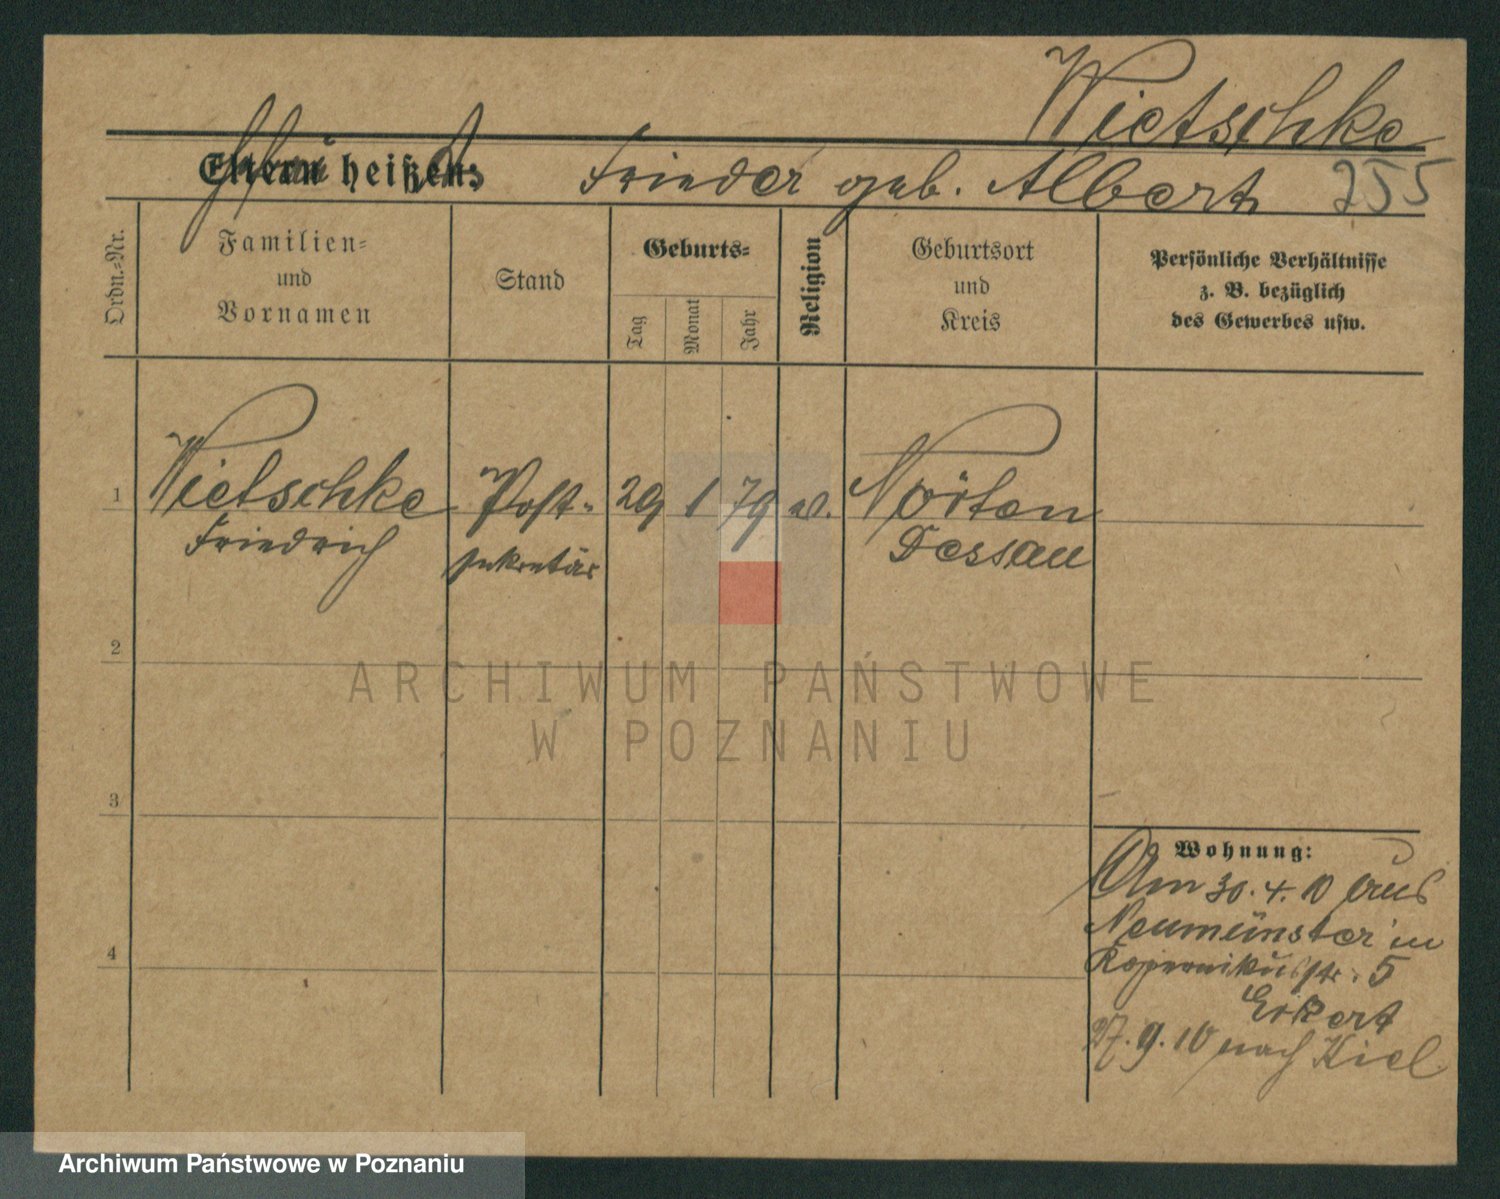 Wietschke
Eltern heißen: Frieder geb. Albert 255
Ordn.-Nr.
Familien-
und
Vornamen
Stand
Geburts-
Tag
Monat
Jahr
Religion
Geburtsort
und
Kreis
Persönliche Verhältnisse
z. B. bezüglich
des Gewerbes usw.
1 Wietschke Post- 29 1 79 Nörten
Friedrich sekretär Dessau
2
3
4
Wohnung:
Am 30.4.10 aus
Neumünster in
Kopernikusstr. 5
27.9.10 nach Kiel
ARCHIWUM PAŃSTWOWE
W POZNANIU
Archiwum Państwowe w Poznaniu